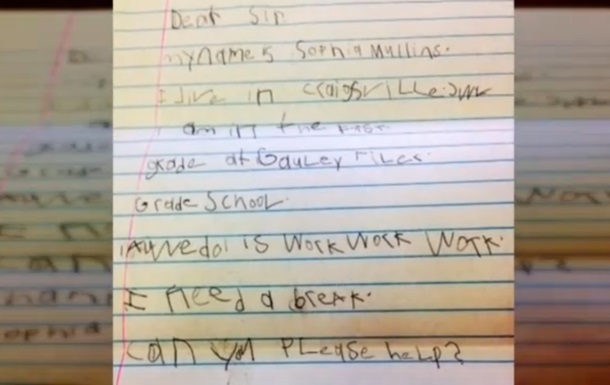 Dear Sir
my name s Sophia Mullins.
I live in craigsville.
am in the first
grade at Gauley
Grade School.
All we do is Work Work Work.
I need a break.
Can you PLease help?